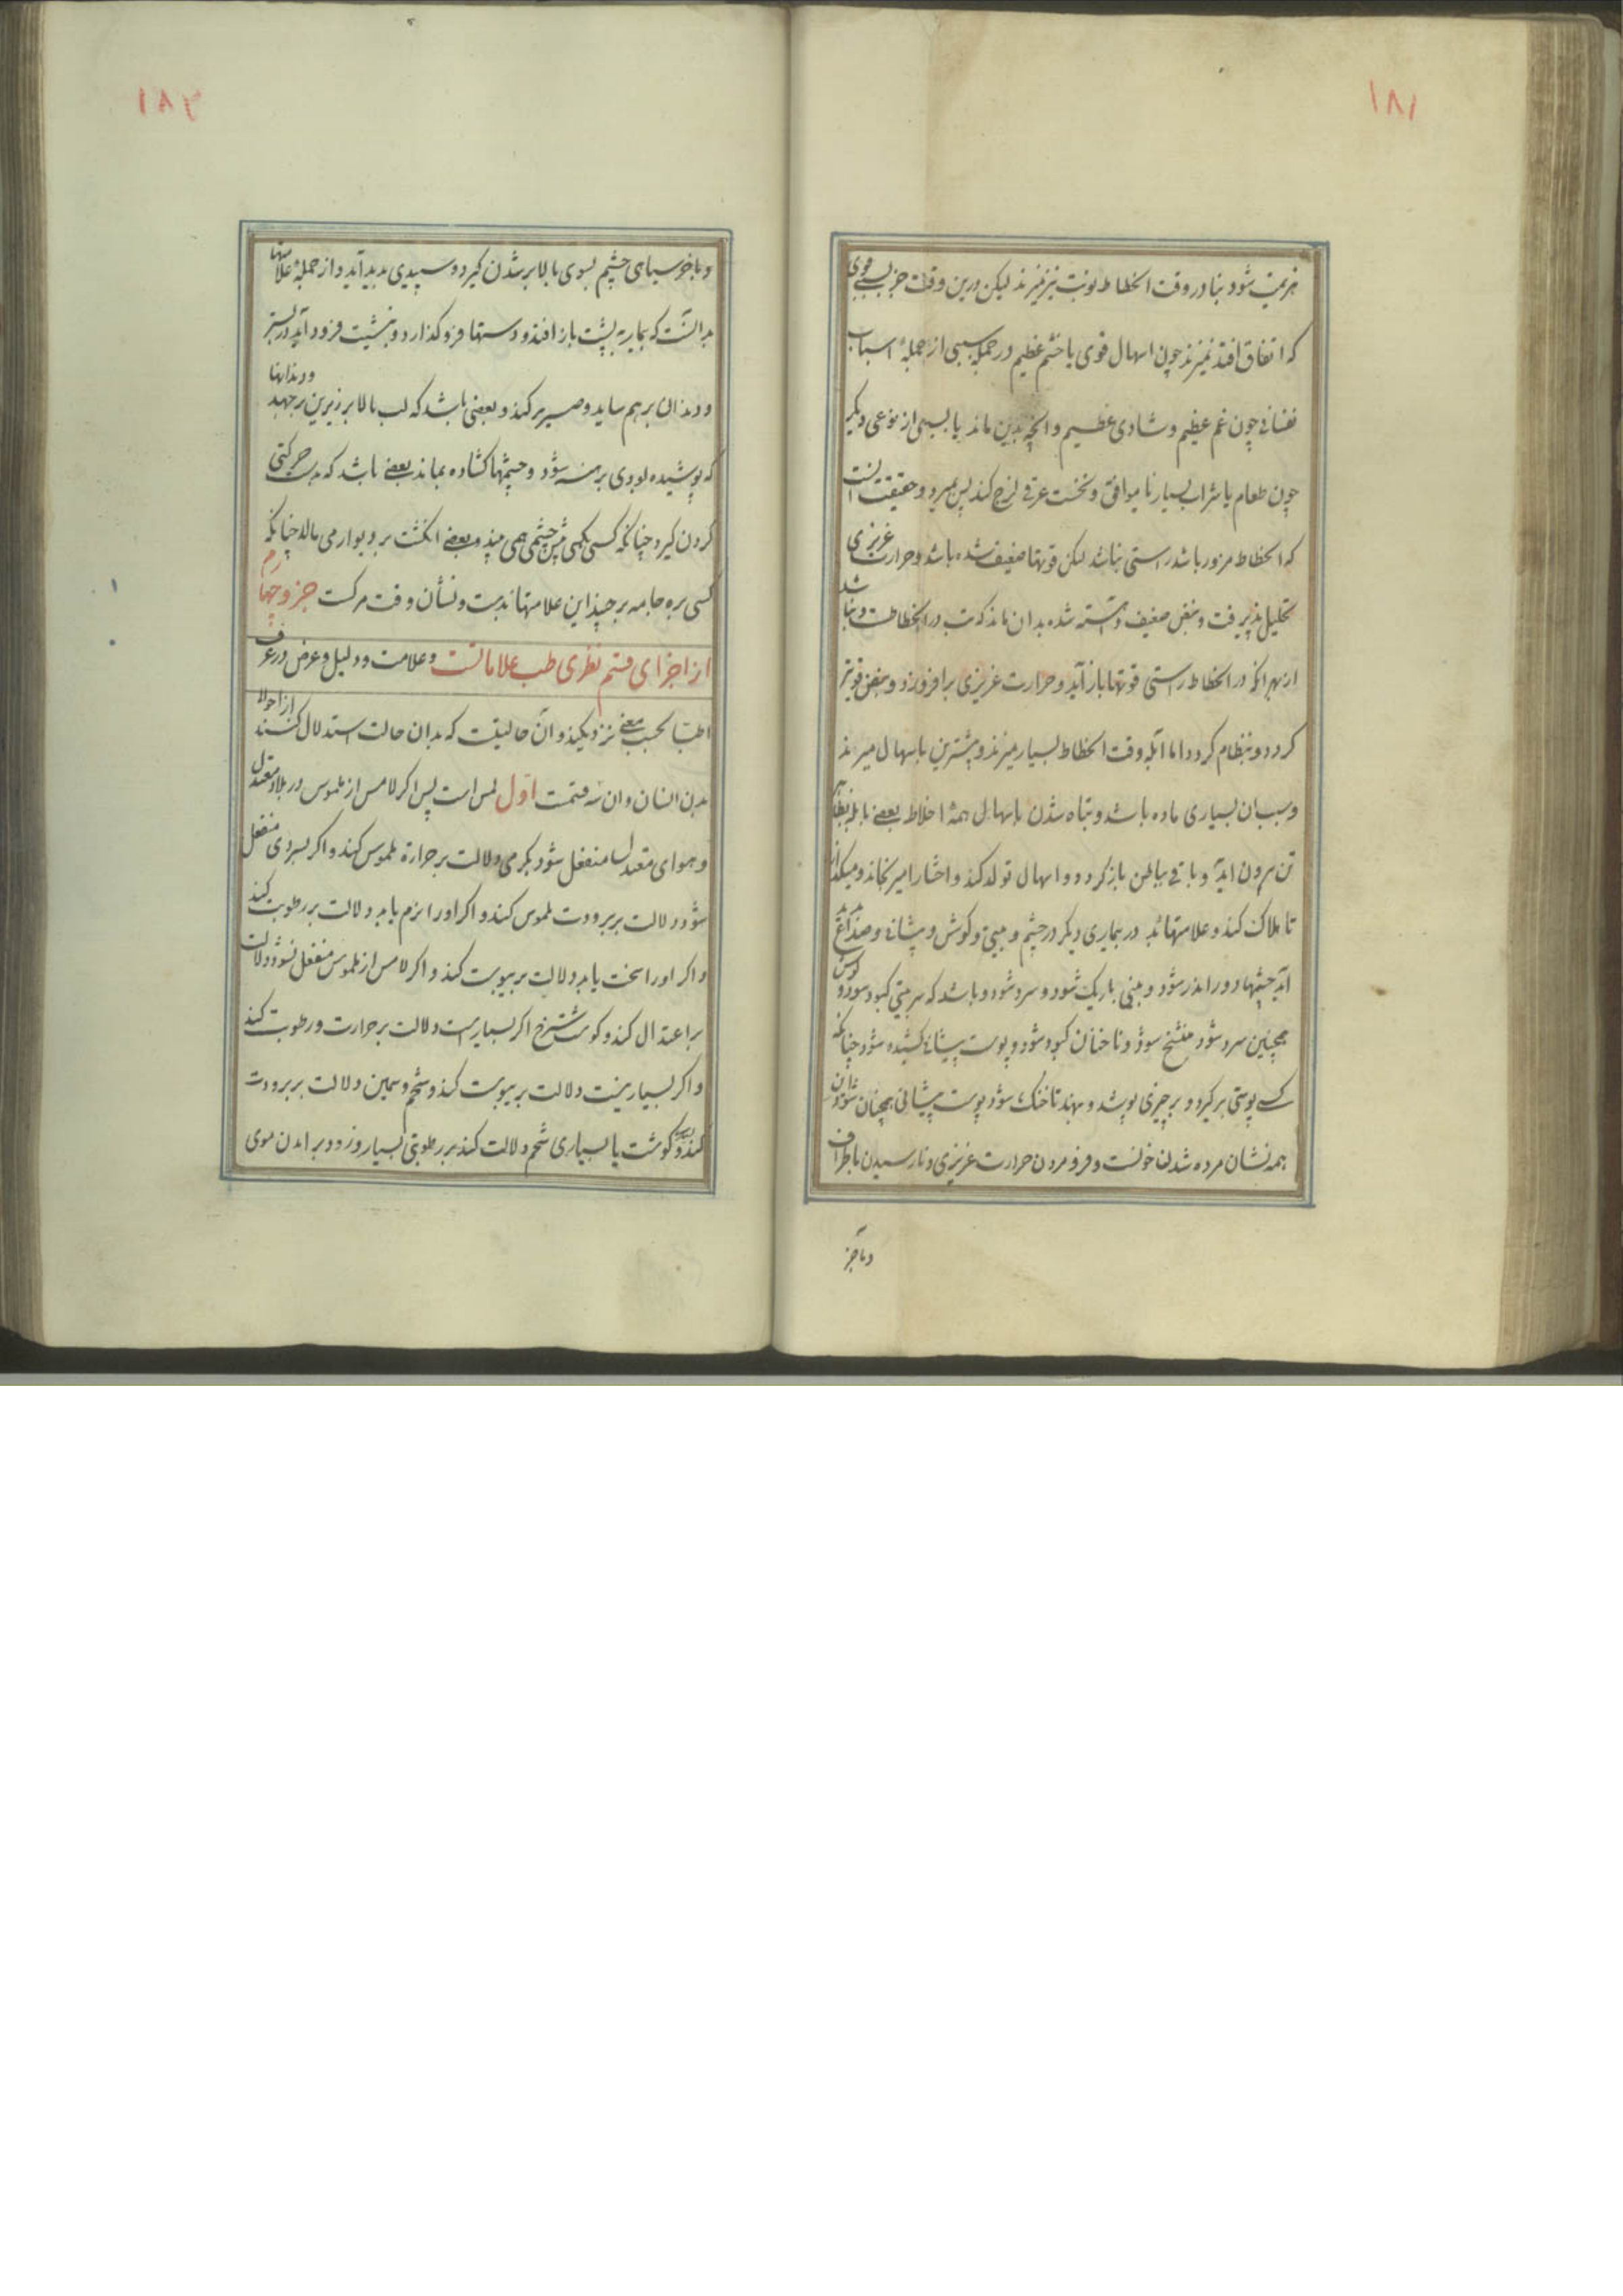 ۱۸۱
هزیمت شود تبها در وقت انحطاط نوبت نیز نمیرند لیکن درین وقت جز بسببی قوی
که اتفاق افتد نمیرند چون اسهال قوی یا خشم عظیم در جمله سببی از جملهٔ اسباب
نفسانی چون غم عظیم و شادی عظیم و انچه بدین ماند یا بسببی از نوعی دیکر
چون طعام یا شراب بسیار نا موافق و نخست عرقی لزج کند پس بمیرد و حقیقت انست
که انحطاط مزور باشد راستی نباشد لکن قوتها ضعیف شده باشد و حرارت غریزی
تحلیل پذیرفت و نبض ضعیف و اهسته شده بدان ماند که تب در انحطاطست و نباشد
از بهر انکه در انحطاط راستی قوتها باز آید و حرارت غریزی برافروزد و نبض قویتر
کردد و بنظام کردد اما آبله وقت انحطاط بسیار میرند و بیشترین باسهال میرند
و سبب ان بسیاری ماده باشد و تباه شدن باسهال همهٔ اخلاط بعضی بابله بظاهر
تن برون اید و باقی بباطن باز کردد و اسهال تولد کند و احشا را میرنجاند و میکدازد
تا هلاک کند و علامتها بد در بیماری دیکر در چشم و بینی و کوش و پیشانی و صداغ پدید
آید چشمها دور اندر شود و بینی باریک شود و سرد شود و باشد که سر بینی کبود شود و کوش
همچنین سرد شود منشنج شود و ناخنان کبود شود و پوست پیشانی کشیده شود چنانکه
کسی پوستی برکیرد و بر چیزی پوشد و بنهد تا خنک شود پوست پیشانی همچنان شود و این
همه نشان مرده شدن خونست و فرو مردن حرارت غریزی و نارسیدن باطراف
و بآخر
۱۸۲
و بآخر سیاهی چشم بسوی بالا بر شدن کیرد و سپیدی پدید آید و از جملهٔ علامتها
بد انست که بیمار بپشت باز افتد و دستها فرو کذارد و بنشیت فرود آید در بستر
و دندان بر هم ساید و صریر کند و بعضی باشد که لب بالا بر زیرین برجهد و دندانها
که پوشیده بودی برهنه شود و چشمها کشاده بماند بعضی باشد که حرکتی
کردن کیرد چنانکه کسی مکس پیش چشم همی بیند و بعضی انکشت بر دیوار می مالد چنانکه
کسی بره جامه برچیند این علامتها بدست و نشان وقت مرکست جزو چهارم
از اجزای قسم نظری طب علاماتست و علامت و دلیل و عرض در عرف
اطبا بحسب معنی نزدیکند و آن حالیتت که بدان حالت استدلال کنند از احوال
بدن انسان و ان سه قسمت اول لمس است پس اکر لامس از ملموس در بلاد معتدل
و هوای معتدل منفعل شود بکرمی دلالت بر حرارة ملموس کند و اکر بسردی منفعل
شود دلالت بر برودت ملموس کند و اکر اورا نرم یابد دلالت بر رطوبت کند
و اکر اورا سخت یابد دلالت بر یبوست کند و اکر لامس از ملموس منفعل نشود دلالت
بر اعتدال کند و کوشت سرخ اکر بسیارست دلالت بر حرارت و رطوبت کند
و اکر بسیار نیست دلالت بر یبوست کند و شحم و سمین دلالت بر برودت
کند و کوشت یا بسیاری شحم دلالت کند بر رطوبتی بسیار و زود بر امدن موی